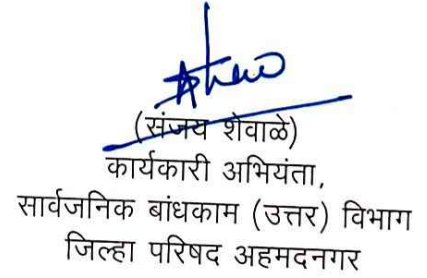 (संजय शेवाळे)
कार्यकारी अभियंता,
सार्वजनिक बांधकाम (उत्तर) विभाग
जिल्हा परिषद अहमदनगर